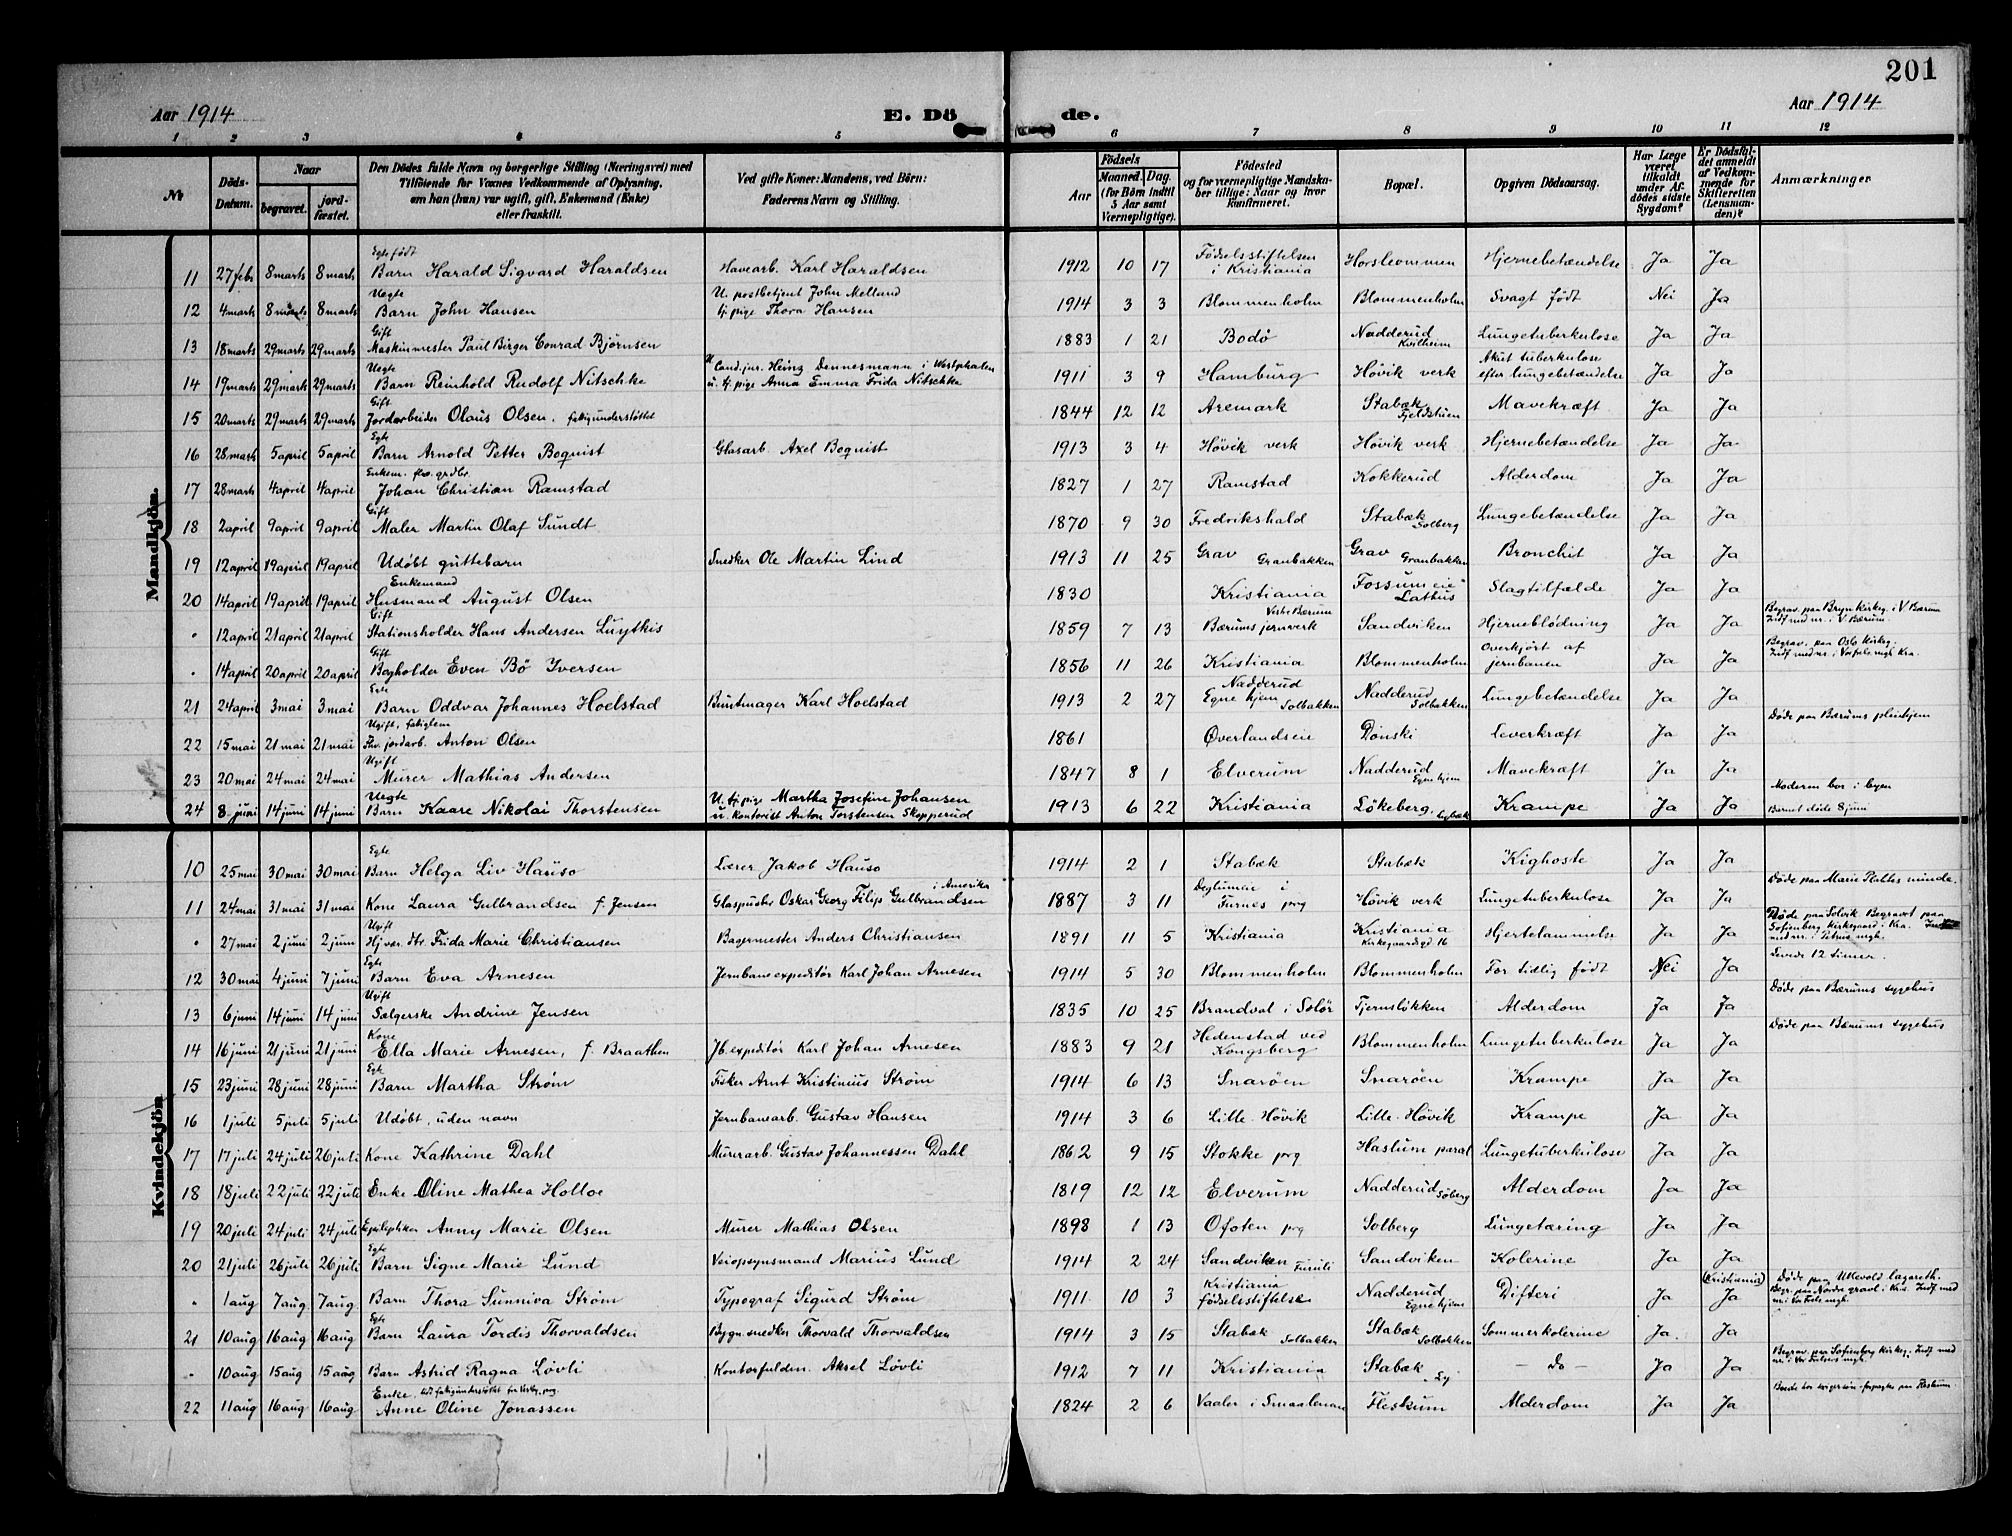 201
Aar 1914 E. Dö de. Aar 1914
1 2 3 4 5 6 7 8 9 10 11 12
No
Döds-Datum.
Naar
begravet.
jordfæstet.
Den Dödes fulde Navn og borgerlige Stilling (Næringsvei) med
Tilföiende for Voxnes Vedkommende af Oplysning,
om han (hun) var ugift, gift, Enkemand (Enke)
eller fraskilt.
Ved gifte Koner: Mandens, ved Börn:
Faderens Navn og Stilling.
Födsels
Aar
Maaned. Dag.
(for Börn indtil
5 Aar samt
Værnepligtige).
Födested
og for værnepligtige Mandskaber tillige: Naar og hvor
konfirmeret.
Bopæl.
Opgiven Dödsaarsag.
Har Læge
været
tilkaldt
under Afdödes sidste
Sygdom?
Er Dödsfaldet anmeldt
af Vedkommende for
Skifteretten
(Lensmanden)?
Anmærkninger
Mandkjön.
Egte født
11 27 febr 8 marts 8 marts Barn Harald Sigvard Haraldsen Havearb. Karl Haraldsen 1912 10 17 Fødselsstiftelsen i Kristiania Horsleommen Hjernebetændelse Ja Ja
Uegte
12 4 marts 8 marts 8 marts Barn John Hansen U. postbetjent John Melland tj. pige Thora Hansen 1914 3 3 Blommenholm Blommenholm Svagt født Nei Ja
Gift
13 18 marts 29 marts 29 marts Maskinmester Paul Birger Conrad Bjørnsen 1883 1 21 Bodø Nadderud Kvilheim Lungetuberkulose Ja Ja
Uegte
14 19 marts 29 marts 29 marts Barn Reinhold Rudolf Nitschke U. Cand. jur. Heinz Dennesmann i Westphalen u. tj. pige Anna Emma Frida Nitschke 1911 3 9 Hamburg Høvik verk Akut tuberkulose efter lungebetændelse Ja Ja
Gift
15 20 marts 29 marts 29 marts Jordarbeider Olaus Olsen. fattigunderstøttet 1844 12 12 Aremark Stabæk Fjeldstuen Mavekræft Ja Ja
Egte
16 28 marts 5 april 5 april Barn Arnold Petter Boquist Glasarb. Axel Boquist 1913 3 4 Høvik verk Høvik verk Hjernebetændelse Ja Ja
Enkem. fhv. grdbr.
17 28 marts 4 april 4 april Johan Christian Ramstad 1827 1 27 Ramstad Kokkerud Alderdom Ja Ja
Gift
18 2 april 9 april 9 april Maler Martin Olaf Sundt 1870 9 30 Fredrikshald Stabæk Solberg Lungebetændelse Ja Ja
19 12 april 19 april 19 april Udøbt guttebarn Snedker Ole Martin Lind 1913 11 25 Grav Granbakken Grav Granbakken Bronchit Ja Ja
Enkemand
20 14 april 19 april 19 april Husmand August Olsen 1830 Kristiania Fossum eie Lathus Slagtilfælde Ja Ja
Gift
" 12 april 21 april 21 april Stationsholder Hans Andersen Luytkis 1859 7 13 Vestre Bærum Bærums jernverk Sandviken Hjerneblødning Ja Ja Begrav. paa Bryn Kirkeg. i V. Bærum Indf. med nr. i V. Bærum.
Gift
" 14 april 20 april 20 april Bogholder Even Bö Iversen 1856 11 26 Kristiania Blommenholm Overkjørt af jernbanen Ja Ja Begrav. paa Oslo Kirkeg. Indf. med nr. i Vor frels. mgh. Kra.
Egte
21 24 april 3 mai 3 mai Barn Oddvar Johannes Hoelstad Buntmager Karl Hoelstad 1913 2 27 Nadderud Egne hjem Solbakken Nadderud Solbakken Lungebetændelse Ja Ja
Ugift, fattiglem
22 15 mai 21 mai 21 mai Fhv. jordarb. Anton Olsen 1861 Øverlandseie Dønski Leverkræft Ja Ja Døde paa Bærums pleiehjem
Ugift
23 20 mai 24 mai 24 mai Murer Mathias Andersen 1847 8 1 Elverum Nadderud Egne hjem Mavekræft Ja Ja
Uegte
24 8 juni 14 juni 14 juni Barn Kaare Nikolai Thorstensen U. tj. pige Martha Josefine Johansen u. Kontorist Anton Torstensen Skopperud 1913 6 22 Kristiania Løkeberg, Krampe Ja Ja Moderen bor i byen Barnet døde 8 juni
Kvindekjön
Egte
10 25 mai 30 mai 30 mai Barn Helga Liv Hauso Lærer Jakob Hauso 1914 2 1 Stabæk Stabæk Kighoste Ja Ja
11 24 mai 31 mai 31 mai Kone Laura Gulbrandsen f. Jensen Glaspuster Oskar Georg Filip Gulbrandsen i Amerika 1887 3 11 Deglumeie i Furnes prg Høvik verk Lungetuberkulose Ja Ja Døde paa Marie Plahtes minde.
Ugift
" 27 mai 2 juni 2 juni Hj.vær. dtr. Frida Marie Christiansen Bagermester Anders Christiansen 1891 11 5 Kristiania Kristiania Kirkegaardsgd 16 Hjertelammelse Ja Ja Døde paa Solvik Begravet paa Sofienberg Kirkegaard i Kra. Indf. med nr. i Petrus mgh.
Egte
12 30 mai 4 juni 7 juni Barn Eva Arnesen Jernbaneexpeditör Karl Johan Arnesen 1914 5 30 Blommenholm Blommenholm For tidlig født Nei Ja Levede 12 timer.
Ugift
13 6 juni 14 juni 14 juni Sælgerske Andrine Jensen 1835 10 25 Brandval i Solör Tjernsløkken Alderdom Ja Ja Døde paa Bærums sygehus
Kone
14 16 juni 21 juni 21 juni Ella Marie Arnesen, f. Braathen Jb. expeditör Karl Johan Arnesen 1883 9 21 Hedenstad ved Kongsberg Blommenholm Lungetuberkulose Ja Ja Døde paa Bærums sygehus
Egte
15 23 juni 28 juni 28 juni Barn Martha Strøm Fisker Arnt Kristinius Strøm 1914 6 13 Snarøen Snarøen Krampe Ja Ja
16 1 juli 5 juli 5 juli Udøbt, uden navn Jernbanearb. Gustav Hansen 1914 3 6 Lille-Høvik Lille-Høvik Krampe Ja Ja
17 17 juli 24 juli 26 juli Kone Kathrine Dahl Murerarb. Gustav Johannessen Dahl 1862 9 15 Stokke prg Haslum parcel Lungetuberkulose Ja Ja
18 18 juli 22 juli 22 juli Enke Oline Mathea Holtoe 1819 12 12 Elverum Nadderud Søberg Alderdom Ja Ja
19 20 juli 24 juli 24 juli Epileptiker Anny Marie Olsen Murer Mathias Olsen 1898 1 13 Ofoten prg Solberg Lungetæring Ja Ja
Egte
20 21 juli 26 juli 26 juli Barn Signe Marie Lund Veiopsynsmand Marius Lund 1914 2 24 Sandviken Furuli Sandviken Kolerine Ja Ja
" 1 aug 7 aug 7 aug Barn Thora Sunniva Strøm Typograf Sigurd Strøm 1911 10 3 Kristiania fødselsstiftelse Nadderud Egne hjem Difteri Ja (Kristiania) Ja Døde paa Ullevold lazareth. Begr. paa Nordre gravl. i Kra. Indf. med nr. i Vor Frels. mgh.
Egte
21 10 aug 16 aug 16 aug Barn Laura Tordis Thorvaldsen Bygn. snedker Thorvald Thorvaldsen 1914 3 15 Stabæk Solbakken Stabæk Solbakken Sommerkolerine Ja. Ja
" 10 aug 15 aug 15 aug Barn Astrid Ragna Løvli Kontorfuldm. Aksel Løvli 1912 7 11 Kristiania Stabæk Ly - Do - Ja Ja Begrav. paa Sofienberg kirkeg. Indf. med nr. i Vor Frelsers mgh.
Enke,
22 11 aug 16 aug 16 aug Anne Oline Jonassen 1824 2 6 Vaaler i Smaalenene Fleskum Alderdom Ja Ja